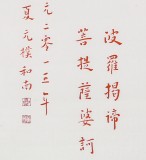 波羅揭諦
菩提薩婆訶
元二零一三年
夏元樸和南